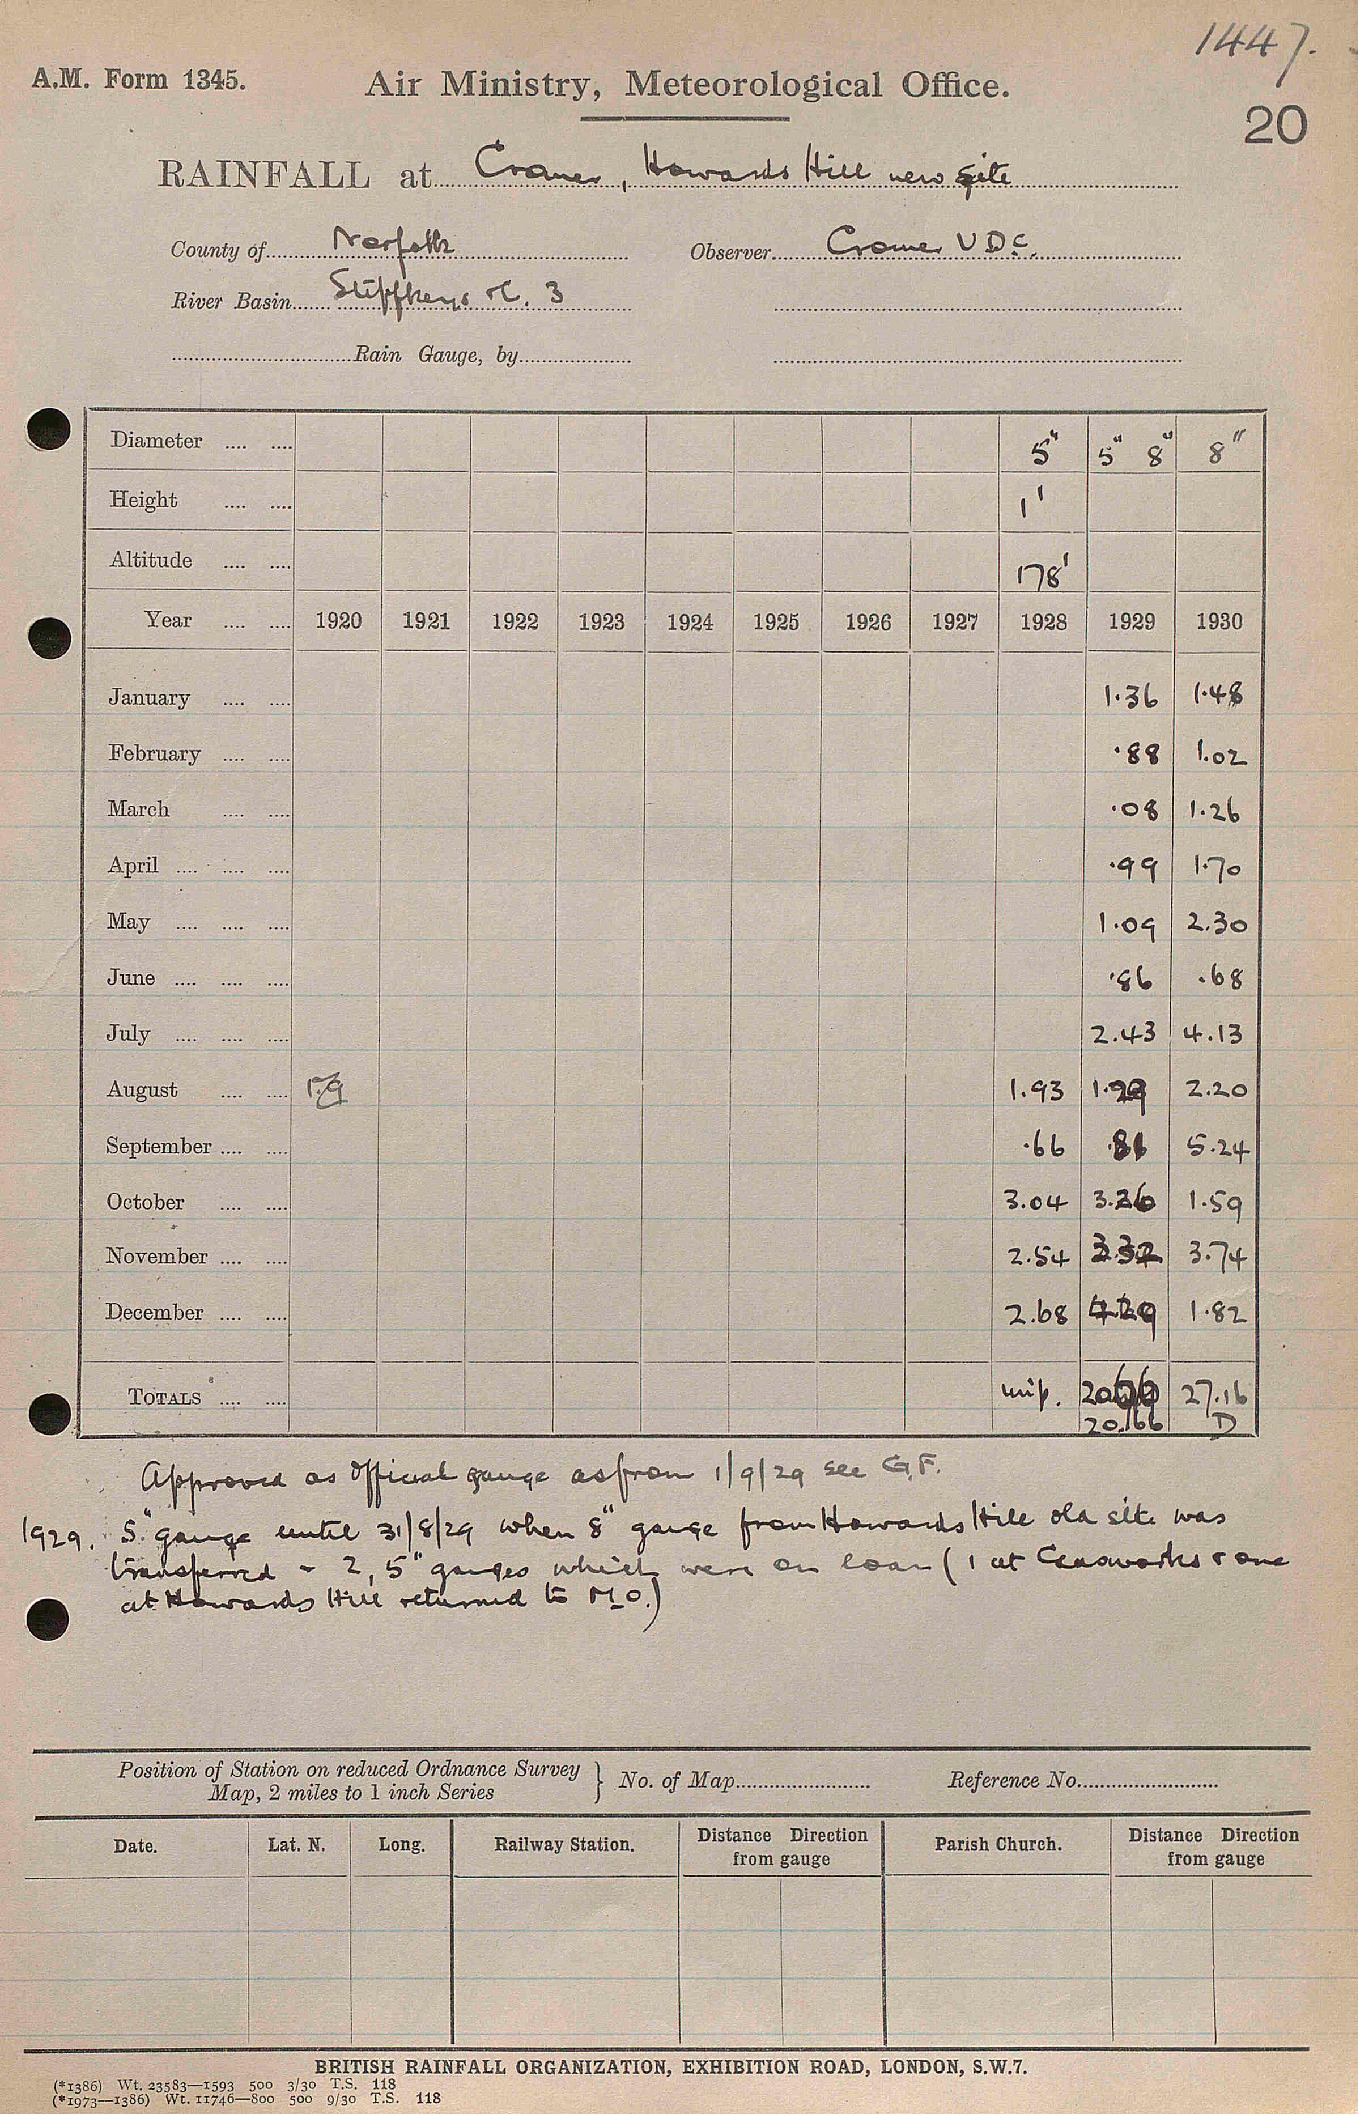 1447.
A.M. Form 1345. Air Ministry, Meteorological Office.
20
RAINFALL at Cromer, Howards Hill new site
County of Norfolk Observer Cromer UDC.
River Basin Stiffkey &c. 3
Rain Gauge, by
Diameter .... .... 5" 5" 8" 8"
Height .... .... 1'
Altitude .... .... 178'
Year .... .... 1920 1921 1922 1923 1924 1925 1926 1927 1928 1929 1930
January .... .... 1.36 1.48
February .... .... .88 1.02
March .... .... .08 1.26
April .... .... .... .99 1.70
May .... .... .... 1.09 2.30
June .... .... .... .86 .68
July .... .... .... 2.43 4.13
August .... .... 1.93 1.29 2.20
September .... .... .66 .81 5.24
October .... .... 3.04 3.26 1.59
November .... .... 2.54 3.32 3.74
December .... .... 2.68 4.29 1.82
TOTALS .... .... imp. 20.66 27.16
20.66 D
Approved as official gauge as from 1/9/29 see G.F.
1929. 5" gauge until 31/8/29 when 8" gauge from Howards Hill old site was
transferred - 2, 5" gauges which were on loan (1 at Gasworks & one
at Howards Hill returned to M.O.)
Position of Station on reduced Ordnance Survey
Map, 2 miles to 1 inch Series } No. of Map Reference No.
Date. Lat. N. Long. Railway Station. Distance Direction from gauge Parish Church. Distance Direction from gauge
BRITISH RAINFALL ORGANIZATION, EXHIBITION ROAD, LONDON, S.W.7.
(*1386) Wt. 23583—1593 500 3/30 T.S. 118
(*1973—1386) Wt. 11746—800 500 9/30 T.S. 118